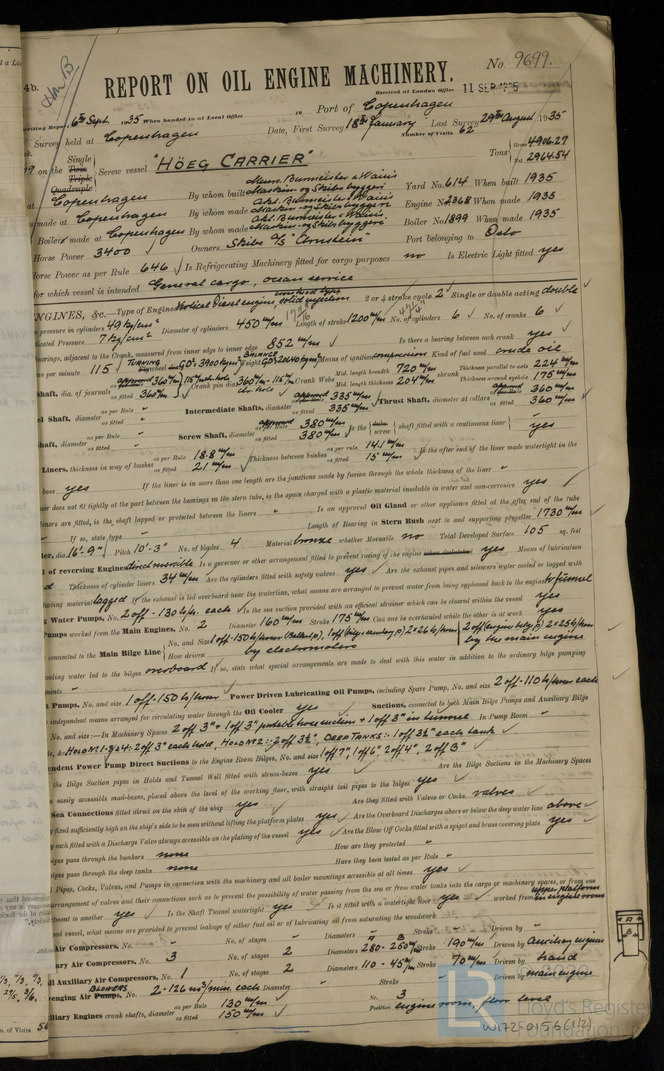 4b.
REPORT ON OIL ENGINE MACHINERY.
No. 9699.
Received at London Office 11 SEP 1935
writing Report 6th Sept. 1935 When handed in at Local Office 19 Port of Copenhagen
Survey held at Copenhagen Date, First Survey 18th January Last Survey 29th August 1935
Number of Visits 62
on the Single Twin Triple Quadruple Screw vessel "HÖEG CARRIER" Tons Gross 4906.27 Net 2964.54
at Copenhagen By whom built Messrs. Burmeister & Wain's Maskin- og Skibsbyggeri Yard No. 614 When built 1935
made at Copenhagen By whom made Akt. Burmeister & Wain's Maskin- og Skibsbyggeri Engine No. 2368 When made 1935
Boiler made at Copenhagen By whom made Akt. Burmeister & Wain's Maskin- og Skibsbyggeri Boiler No. 1899 When made 1935
Horse Power 3400 Owners Skibs A/S "Arnstein" Port belonging to Oslo
Horse Power as per Rule 646 Is Refrigerating Machinery fitted for cargo purposes no Is Electric Light fitted yes
for which vessel is intended General cargo, ocean service
ENGINES, &c. Type of Engine Vertical Diesel engine, solid injection 2 or 4 stroke cycle 2 Single or double acting double
pressure in cylinders 49 kg/cm² Diameter of cylinders 450 m/m Length of stroke 1200 m/m No. of cylinders 6 No. of cranks 6
Indicated Pressure 7 kg/cm²
bearings, adjacent to the Crank, measured from inner edge to inner edge 852 m/m Is there a bearing between each crank yes
per minute 115 Means of ignition compression Kind of fuel used crude oil
Shaft, dia. of journals as fitted 360 m/m Crank pin dia. 360 m/m Crank Webs Mid. length breadth 720 m/m Mid. length thickness 204 m/m shrunk Thickness parallel to axis 224 m/m Thickness around eyehole 175 m/m
Shaft, diameter as per Rule " as fitted " Intermediate Shafts, diameter approved 335 m/m as fitted 335 m/m Thrust Shaft, diameter at collars approved 360 m/m as fitted 360 m/m
Shaft, diameter as per Rule " as fitted " Screw Shaft, diameter approved 380 m/m as fitted 380 m/m Is the screw shaft fitted with a continuous liner yes
Liners, thickness in way of bushes as per Rule 18.8 m/m as fitted 21 m/m Thickness between bushes as per rule 14.1 m/m as fitted 15 m/m Is the after end of the liner made watertight in the
boss yes If the liner is in more than one length are the junctions made by fusion through the whole thickness of the liner "
does not fit tightly at the part between the bearings in the stern tube, is the space charged with a plastic material insoluble in water and non-corrosive yes
liners are fitted, is the shaft lapped or protected between the liners " Is an approved Oil Gland or other appliance fitted at the after end of the tube
If so, state type " Length of Bearing in Stern Bush next to and supporting propeller 1730 m/m
dia. 16'-9" Pitch 10'-3" No. of blades 4 Material bronze whether Moveable no Total Developed Surface 105 sq. feet
of reversing Engines direct reversible Is a governor or other arrangement fitted to prevent racing of the engine when declutched yes Means of lubrication
Thickness of cylinder liners 34 m/m Are the cylinders fitted with safety valves yes Are the exhaust pipes and silencers water cooled or lagged with
conducting material lagged If the exhaust is led overboard near the waterline, what means are arranged to prevent water being syphoned back to the engine to funnel
Water Pumps, No. 2 off - 130 t/h. each Is the sea suction provided with an efficient strainer which can be cleared within the vessel yes
Pumps worked from the Main Engines, No. 2 Diameter 160 m/m Stroke 175 m/m Can one be overhauled while the other is at work yes
connected to the Main Bilge Line No. and Size 1 off-150 t/hour (Ballast p.), 1 off (bilge sanitary p.) 2×26 t/hour 2 off (engine bilge p.) 2×25 t/hour
How driven by electromotors by the main engine
cooling water led to the bilges overboard If so, state what special arrangements are made to deal with this water in addition to the ordinary bilge pumping
Pumps, No. and size 1 off-150 t/hour Power Driven Lubricating Oil Pumps, including Spare Pump, No. and size 2 off-110 t/hour each
independent means arranged for circulating water through the Oil Cooler yes Suctions, connected to both Main Bilge Pumps and Auxiliary Bilge
No. and size:—In Machinery Spaces 2 off 3" + 1 off 3" portable hose suction + 1 off 3" in tunnel In Pump Room "
HOLD Nº1-3&4: 2 off 3" each hold, HOLD Nº2:- 2 off 3½", DEEP TANKS:- 1 off 3½" each tank
Independent Power Pump Direct Suctions to the Engine Room Bilges, No. and size 1 off 7", 1 off 6", 2 off 4", 2 off 3"
the Bilge Suction pipes in Holds and Tunnel Well fitted with strum-boxes yes Are the Bilge Suctions in the Machinery Spaces
easily accessible mud-boxes, placed above the level of the working floor, with straight tail pipes to the bilges yes
Sea Connections fitted direct on the skin of the ship yes Are they fitted with Valves or Cocks valves
fixed sufficiently high on the ship's side to be seen without lifting the platform plates yes Are the Overboard Discharges above or below the deep water line above
each fitted with a Discharge Valve always accessible on the plating of the vessel yes Are the Blow Off Cocks fitted with a spigot and brass covering plate yes
pipes pass through the bunkers none How are they protected "
pipes pass through the deep tanks none Have they been tested as per Rule "
Pipes, Cocks, Valves, and Pumps in connection with the machinery and all boiler mountings accessible at all times yes
arrangement of valves and their connections such as to prevent the possibility of water passing from the sea or from water tanks into the cargo or machinery spaces, or from one
compartment to another yes Is the Shaft Tunnel watertight yes Is it fitted with a watertight door yes worked from upper platform in engine room
vessel, what means are provided to prevent leakage of either fuel oil or of lubricating oil from saturating the woodwork
Air Compressors, No. " No. of stages " Diameters " Stroke " Driven by "
Auxiliary Air Compressors, No. 3 No. of stages 2 Diameters 280-250 m/m Stroke 190 m/m Driven by Auxiliary engines
Small Auxiliary Air Compressors, No. 1 No. of stages 2 Diameters 110-45 m/m Stroke 70 m/m Driven by hand
Scavenging Air Pumps, BLOWERS No. 2-126 m³/min. each Diameter " Stroke " Driven by main engine
Auxiliary Engines crank shafts, diameter as per Rule 130 m/m as fitted 150 m/m Nr. 3 Position engine room, floor level
Lloyd's Register Foundation
W172-0156(1/2)